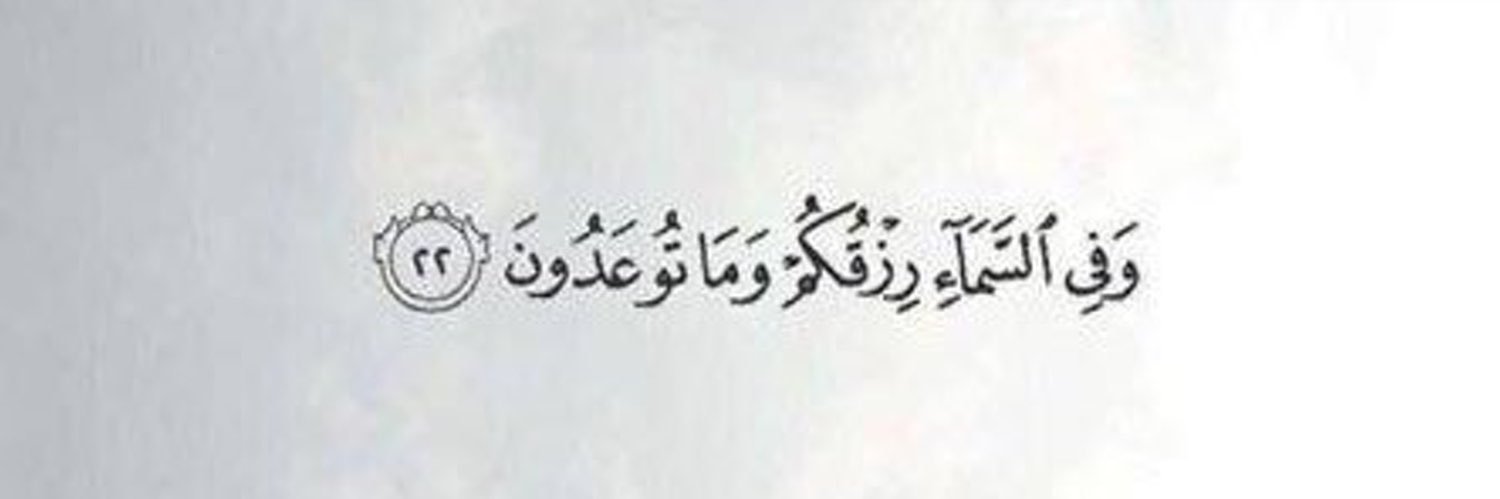 وَفِى ٱلسَّمَآءِ رِزْقُكُمْ وَمَا تُوعَدُونَ ٢٢